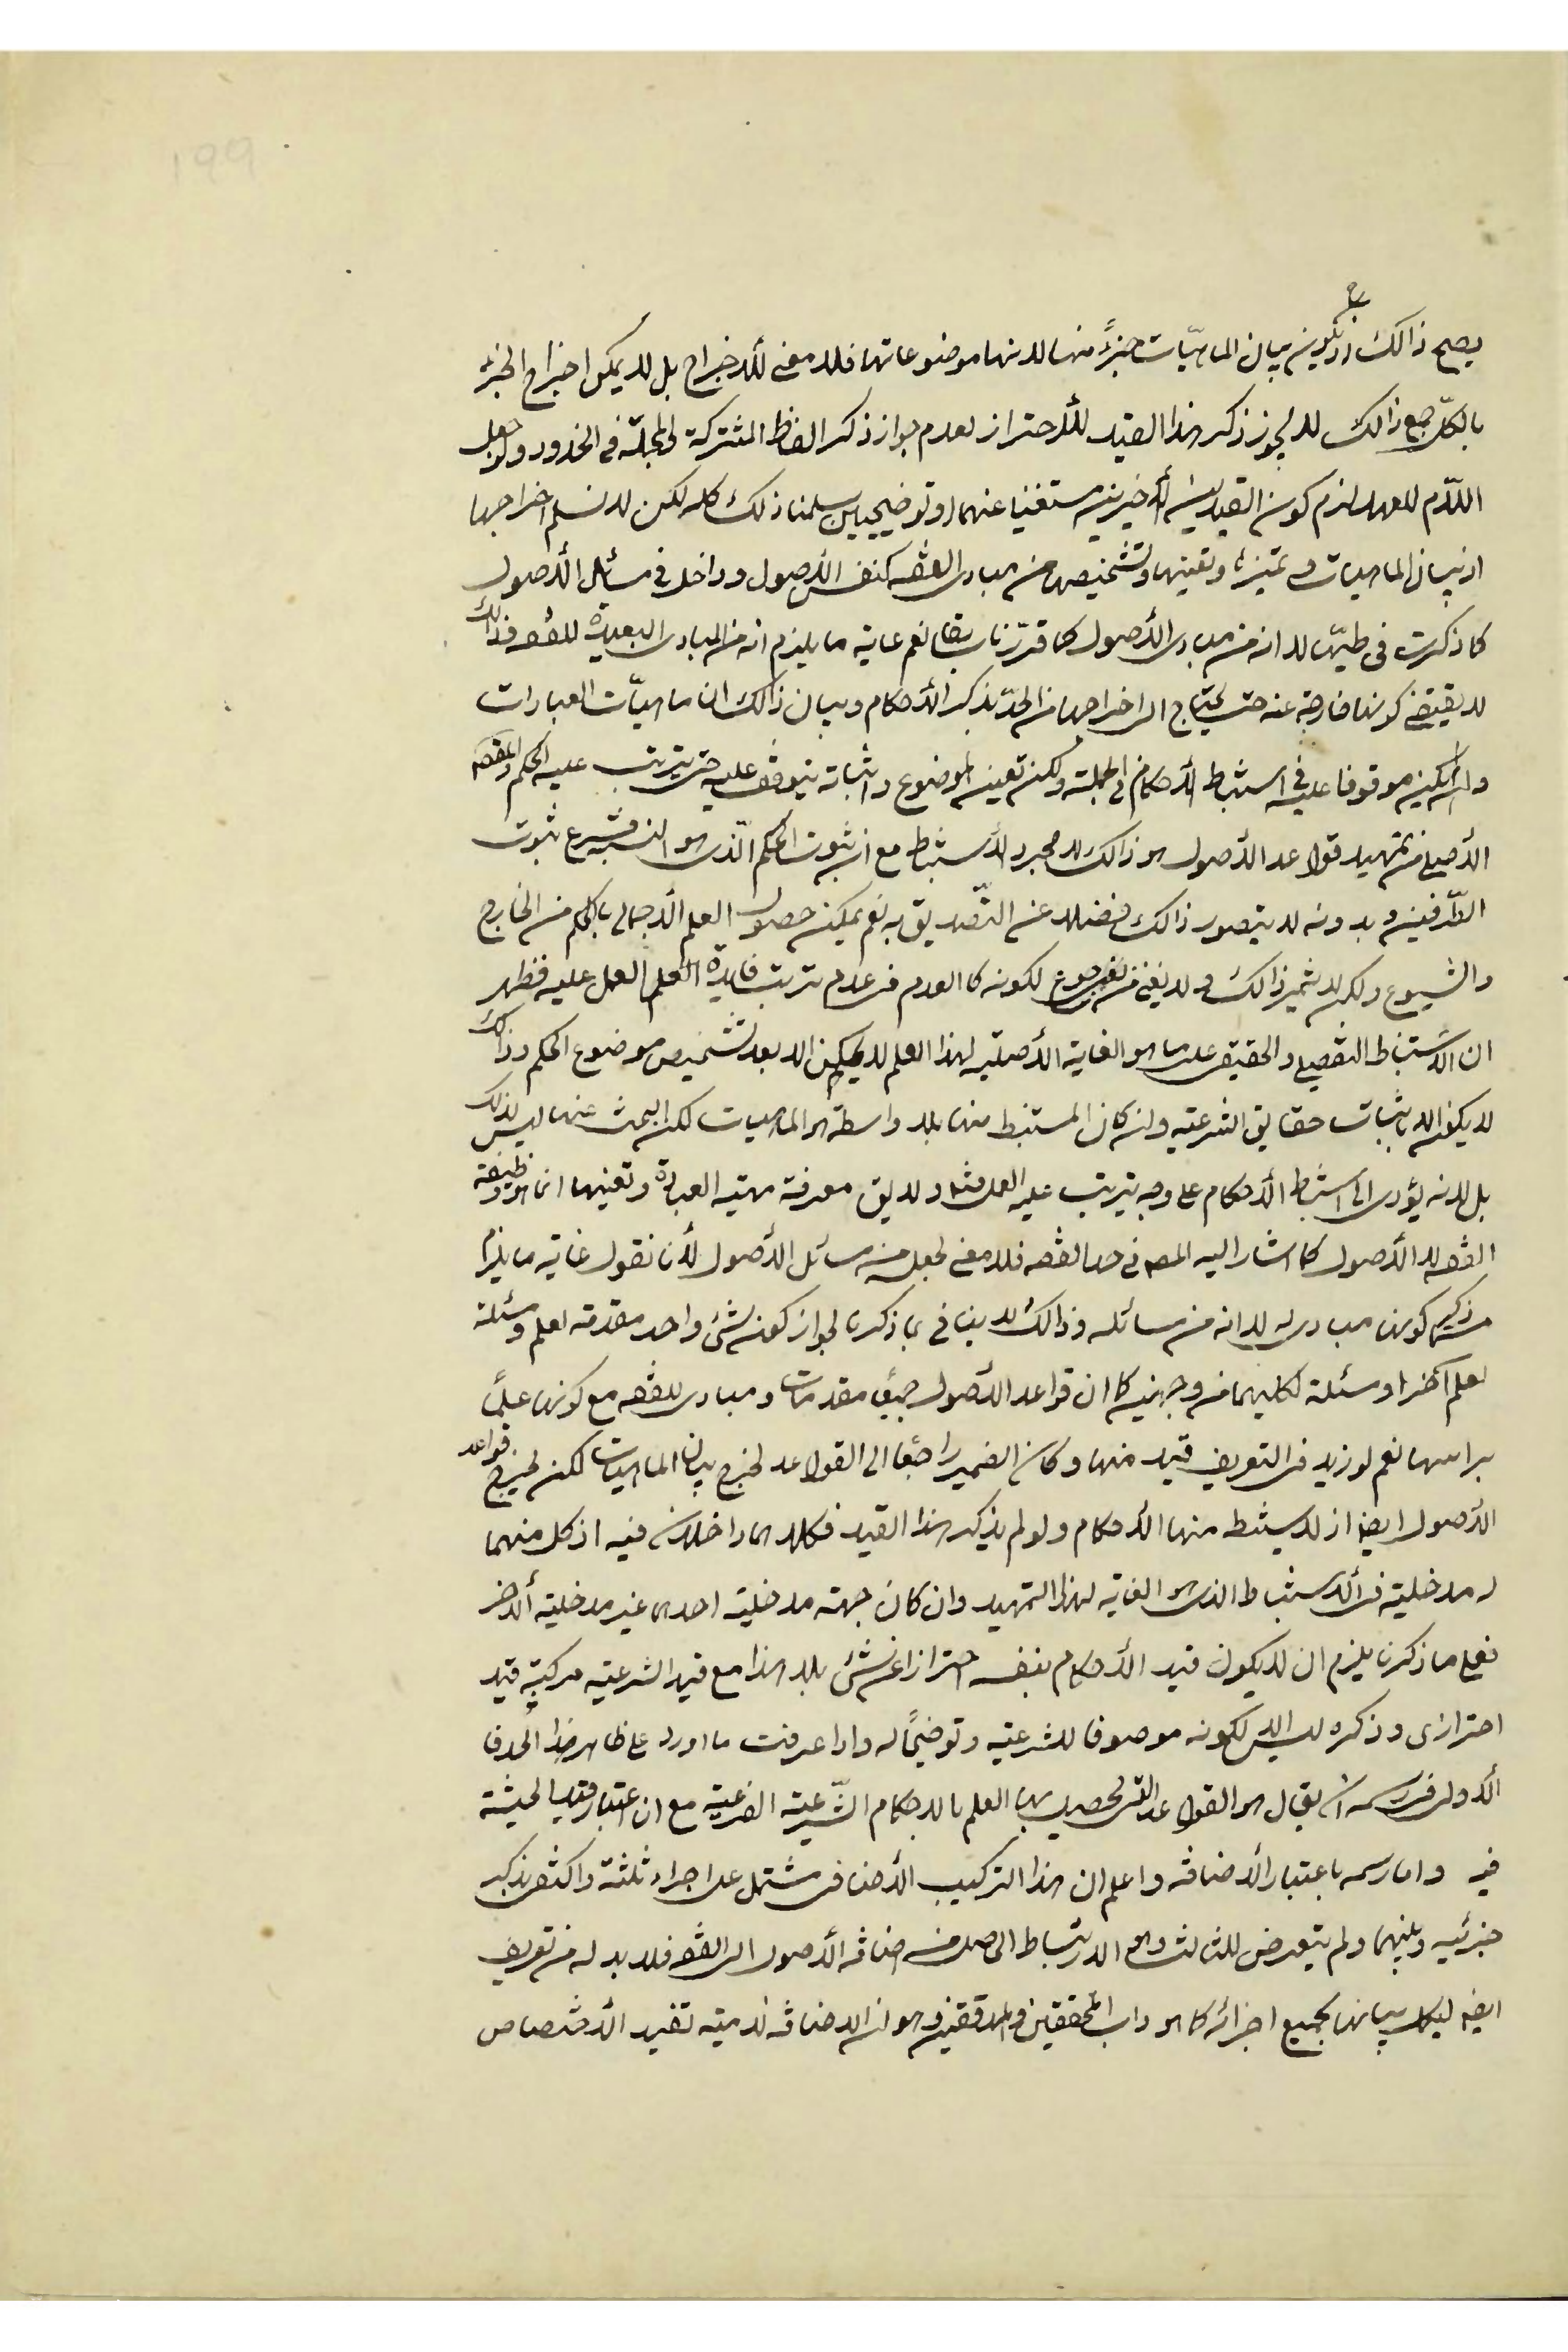 يصح ذالك اذ يكون ح بيان الماهيّات جزءً منها لانها موضوعاتها فلا معنى للأخراج بل لا يمكن اخراج الجزء
بالكلّ مع ذالك لا يجوز ذكر هذا القيد للأحتراز لعدم جواز ذكر الفاظ المشتركة المجملة فى الحدود ولو جعل
اللّام للعهد لزم كون القيدين الأخيرين مستغنيا عنهما او توضيحيين سلمنا ذلك كله لكن لا نسلم اخراجها
اذ بيان الماهيات و تميزها وتعينها وتشخيصها من مبادى الفقه كنفس الأصول وداخل فى مسائل الأصول
كما ذكرت فى طيّها لا انه من مبادى الأصول كما قرّرنا سابقا نعم غاية ما يلزم انه من المبادى البعيدة للفقه فذالك
لا يقتضى كونها خارجة عنه حتى يحتاج الى اخراجها من الحدّ بذكر الأحكام وبيان ذالك ان ماهيّات العبارات
وان لم يكن موقوفا عليه فى استنباط الأحكام فى الجملة ولكن تعين الموضوع واثباته يتوقف عليه حتى يترتب عليه الحكم والمقصد
الأصلى من تمهيد قواعد الأصول هو ذالك لا مجرد الأستنباط مع ان ثبوت الحكم الّذى هو النسبة فرع ثبوت
الطّرفين و بدونه لا يتصور ذالك فضلا عن التّصديق به نعم يمكن حصول العلم الأجمالى بالحكم من الخارج
والشيوع ولكن لا يثمر ذالك و لا يغنى من جوع لكونه كالعدم فى عدم ترتب فايدة العلم العمل عليه فظهر
ان الأستنباط التفصيلى والحقيقى على ما هو الغاية الأصلية لهذا العلم لا يمكن الا بعد تشخيص موضوع الحكم وذالك
لا يكون الا باثبات حقايق الشرعية وان كان المستنبط منها بلا واسطة هو الماهيات لكن البحث عنها ليس لذلك
بل لانه يؤدى الى استنباط الأحكام على وجه يترتب عليه العمل ولا يق معرفة مهية العبادة وتعينها انما هو وظيفة
الفقه لا الأصول كما اشار اليه المصـ فى حد الفقه فلا معنى لجعله من مسائل الأصول لأنا نقول غاية ما يلزم
من ذكرهم كونها مبادى له لا انه من مسائله وذالك لا ينافى ما ذكرنا لجواز كون شئ واحد مقدمة لعلم ومسئلة
لعلم آخر او مسئلة لكليهما من وجهين كما ان قواعد الأصول جميعًا مقدمات و مبادى للفقه مع كونها علمًا
براسها نعم لو زيد فى التعريف قيد منها وكان الضمير راجعًا الى القواعد لخرج بيان الماهيات لكن يخرج قواعد
الأصول ايضا اذ لا يستنبط منها الأحكام ولو لم يذكر هذا القيد فكلاهما داخلان فيه اذ كل منهما
له مدخلية فى الأستنباط الذى هو الغاية لهذا التمهيد وان كان جهة مدخلية احدهما غير مدخلية ألاخر
فعلى ما ذكرنا يلزم ان لا يكون قيد الأحكام بنفسه احترازا عن شئ بل هذا مع قيد الشرعية مركبة قيد
احترازى وذكره ليس الا لكونه موصوفا للشرعية وتوضيحًا له واذا عرفت ما اورد على ظاهر هذا الحد فا
لأولى فى رسمه ان يقال هو القواعد التى يحصل بها العلم بالاحكام الشّرعية الفرعية مع ان اعتبار قيد الحيثية
فيه واما رسمه باعتبار الأضافة واعلم ان هذا التركيب الأضافى مشتمل على اجزاء ثلثة واكتفى بذكر
جزئيه وبينهما ولم يتعرض للثالث وهو الارتباط الحاصل من اضافة الأصول الى الفقه فلا بد له من تعريف
ايضا ليكمل بيانها بجميع اجزائه كما هو داب المحققين والمدققين وهو ان الاضافة لامية تفيد الأختصاص